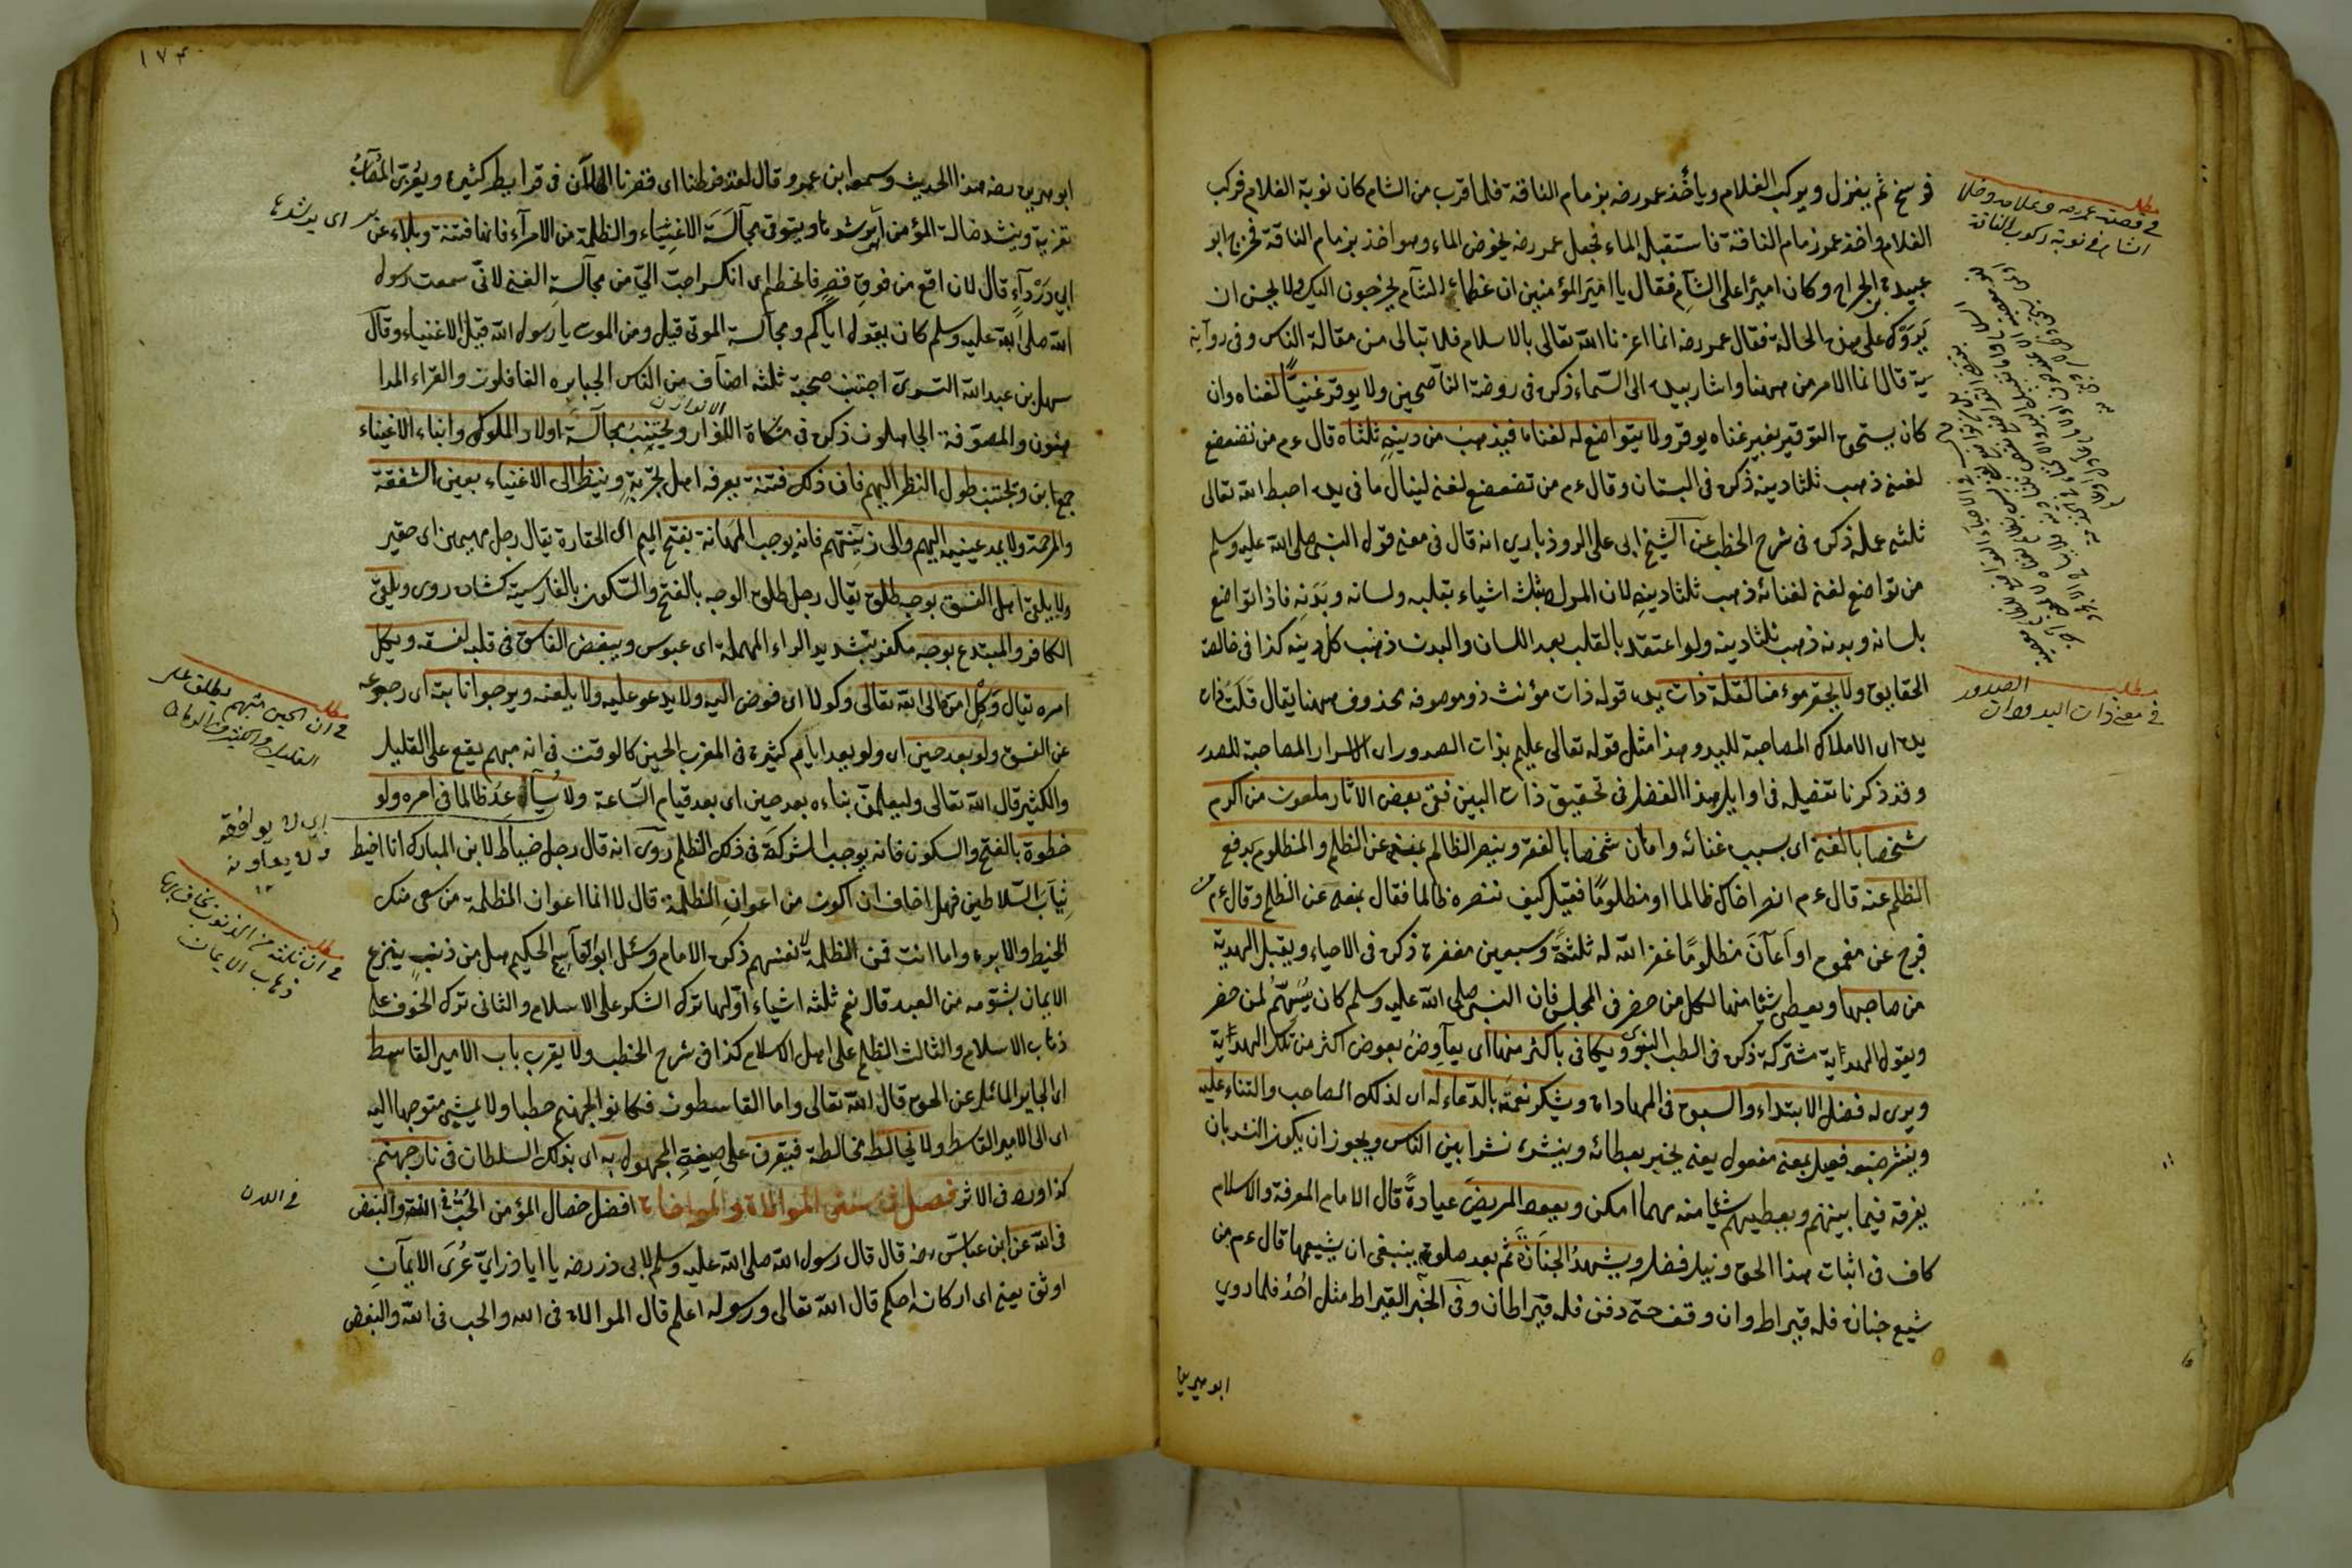 فرسخ ثم ينزل ويركب الغلام ويأخذ عمر رضه بزمام الناقة فلما قرب من الشام كان نوبة الغلام فركب
الغلام واخذ عمر زمام الناقة فاستقبله الماء فجعل عمر رضه يخوض الماء وهو اخذ بزمام الناقة فخرج ابو
عبيدة بن الجراح وكان اميرا على الشام فقال يا امير المؤمنين ان عظماء الشام يخرجون اليك ولا يحسن ان
يروك على هذه الحالة فقال عمر رضه انما اعزنا الله تعالى بالاسلام فلا تبالى من مقالة الناس وفى روآية
قال انما الامر من ههنا واشار بيده الى السماء ذكره فى روضة الناصحين ولا يوقر غنيّا لغناه وان
كان يستحق التوقير بغير غناه يوقر ولا يتواضع له لغناه فيذهب من دينه ثلثاه قال ءم من تضعضع
لغنى ذهب ثلثا دينه ذكره فى البستان وقال ءم من تضعضع لغنى لينال ما فى يده احبط الله تعالى
ثلثى عمله ذكره فى شرح الخطب عن الشيخ ابى على الروذبارى انه قال فى معنى قول النبى صلى الله عليه وسلم
من تواضع لغنى لغنائه ذهب ثلثا دينه لان المرء بثلث اشياء بقلبه ولسانه وبدنه فاذا تواضع
بلسانه وبدنه ذهب ثلثا دينه ولو اعتقد بالقلب بعد اللسان والبدن ذهب كل دينه كذا فى خالصة
الحقايق ولا يحقر مؤمنا لقلة ذات يده قوله ذات مؤنث ذو وموصوفه محذوف ههنا يقال قلت ذات
يده اى الاملاك المصاحبة لليد وهذا مثل قوله تعالى عليم بذات الصدور اى الاسرار المصاحبة للصدر
وقد ذكرنا تفصيله فى اوايل هذا الفصل فى تحقيق ذات البين ففى بعض الاثار ملعون من اكرم
شخصا بالغنى اى بسبب غنائه واهان شخصا بالفقر وينصر الظالم بمنعه عن الظلم والمظلوم بدفع
الظلم عنه قال ءم انصر اخاك ظالما او مظلوما فقيل كيف ننصره ظالما فقال بمنعه عن الظلم وقال ءم من
فرج عن مغموم او اعان مظلوما غفر الله له ثلثة وسبعين مغفرة ذكره فى الاحياء ويقبل الهدية
من صاحبها ويعطى شيئا منها لكل من حضر فى المجلس فان النبى صلى الله عليه وسلم كان يسهم لمن حضر
ويقول الهداية مشتركة ذكره فى الطب النبوى ويكافى باكثر منها اى يعاوض بعوض اكثر من تلك الهداية
ويرى له فضل الابتداء والسبق فى المهاداة ويشكر نعمته بالدعاء له اى لذلك الصاحب والثناء عليه
وينشر صنيعه فعيل بمعنى مفعول يعنى يخبر بعطائه وينشره نشرا بين الناس ويجوز ان يكون النشر بان
يفرقه فيما بينهم ويعطيهم شيئا منه مهما امكن ويعود المريض عيادة قال الامام المعرفة والاسلام
كاف فى اثبات هذا الحق ونيل فضله ويشهد الجنازة ثم بعد صلوته ينبغى ان يشيعها قال ءم من
شيع جنازة فله قيراط وان وقف حتى دفن فله قيراطان وفى الخبر القيراط مثل احد فلما روى
ابو هريرة
مطلب
فى قصة عمر رضه وغلامه وخلا
الشام فى نوبة ركوب الناقة
مطلب
فى معنى ذات اليد وذات الصدور
١٧٤
ابو هريرة رضه هذا الحديث وسمعه ابن عمر وقال لقد فرطنا اى قصرنا الى الآن فى قراريط كثيرة ويعزى المصاب
تعزية وينشد ضالة المؤمن اى يرشدها ويتوقى مجالسة الاغنياء والظلمة من الامرآء فانها فتنة وبلاء عن
ابى دردآء قال لان اقع من فوق قصر فانحطم اى انكسر احب الىّ من مجالسة الغنى لانى سمعت رسول
الله صلى الله عليه وسلم كان يقول اياكم ومجالسة الموتى قيل ومن الموتى يا رسول الله قيل الاغنياء وقال
سهل بن عبد الله التسترى اجتنب صحبة ثلثة اصناف من الناس الجبابره الغافلون والقراء المدا
هنون والمصوفة الجاهلون ذكره فى مشكاة الانوار ويجتنب مجالسة اولاد الملوك وابناء الاغنياء
ويجتنب طول النظر اليهم فان ذلك فتنة يعرفه اهل تجربة وينظر الى الاغنياء بعين الشفقة
والمرحمة ولا يمد عينيه اليهم والى زينتهم فانه يوجب المهانة بفتح الميم اى الحقارة يقال رجل مهين اى حقير
ولا يلقى اهل الفسق بوجه طلق يقال رجل طلق الوجه بالفتح والسكون بالفارسية كشاده روى ويلقى
الكافر والمبتدع بوجه مكفهر بتشديد الراء المهملة اى عبوس ويبغض الفاسق فى قلبه لفسقه ويكل
امره يقال وكل امره الى الله تعالى وكولا اى فوض اليه ولا يدعو عليه ولا يلعنه ويرجو انابته اى رجوعه
عن الفسق ولو بعد حين اى ولو بعد ايام كثيرة فى المغرب الحين كالوقت فى انه مبهم يقع على القليل
والكثير قال الله تعالى ولتعلمن نباءه بعد حين اى بعد قيام الساعة ولا يساعد ظالما فى امره ولو
خطوة بالفتح والسكون فانه يوجب الشركة فى ذلك الظلم روى انه قال رجل خياط لابن المبارك انا اخيط
ثياب السلاطين فهل اخاف ان اكون من اعوان الظلمة قال لا انما اعوان الظلمة من يبيع منك
الخيط والابره واما انت فمن الظلمة نفسهم ذكره الامام وسئل ابو القاسم الحكيم هل من ذنب ينزع
الايمان بشؤمه من العبد قال نعم ثلثة اشياء اولها ترك الشكر على الاسلام والثانى ترك الخوف على
ذهاب الاسلام والثالث الظلم على اهل الاسلام كذا فى شرح الخطب ولا يقرب باب الامير القاسط
اى الجاير المائل عن الحق قال الله تعالى واما القاسطون فكانوا لجهنم حطبا ولا يمشى متوجها اليه
اى الى الامير القاسط ولا يخالطه مخالطة فيقرن على صيغة المجهول به اى بذلك السلطان فى نار جهنم
كذا ورد فى الاثر فصل فى سنن الموالاة والمواخاة افضل خصال المؤمن الحب فى الله والبغض
فى الله عن ابن عباس رضه قال قال رسول الله صلى الله عليه وسلم لابى ذر رضه يا ابا ذر اى عرى الايمان
اوثق يعنى اى اركانه احكم قال الله تعالى ورسوله اعلم قال الموالاة فى الله والحب فى الله والبغض
اى يرشدها
مطلب
فى ان الحين مبهم يطلق على
القليل والكثير من الاوقات
اى لا يوافقه
ولا يعاونه
١٢
مطلب
فى ان ثلثة من الذنوب يخاف بها
ذهاب الايمان